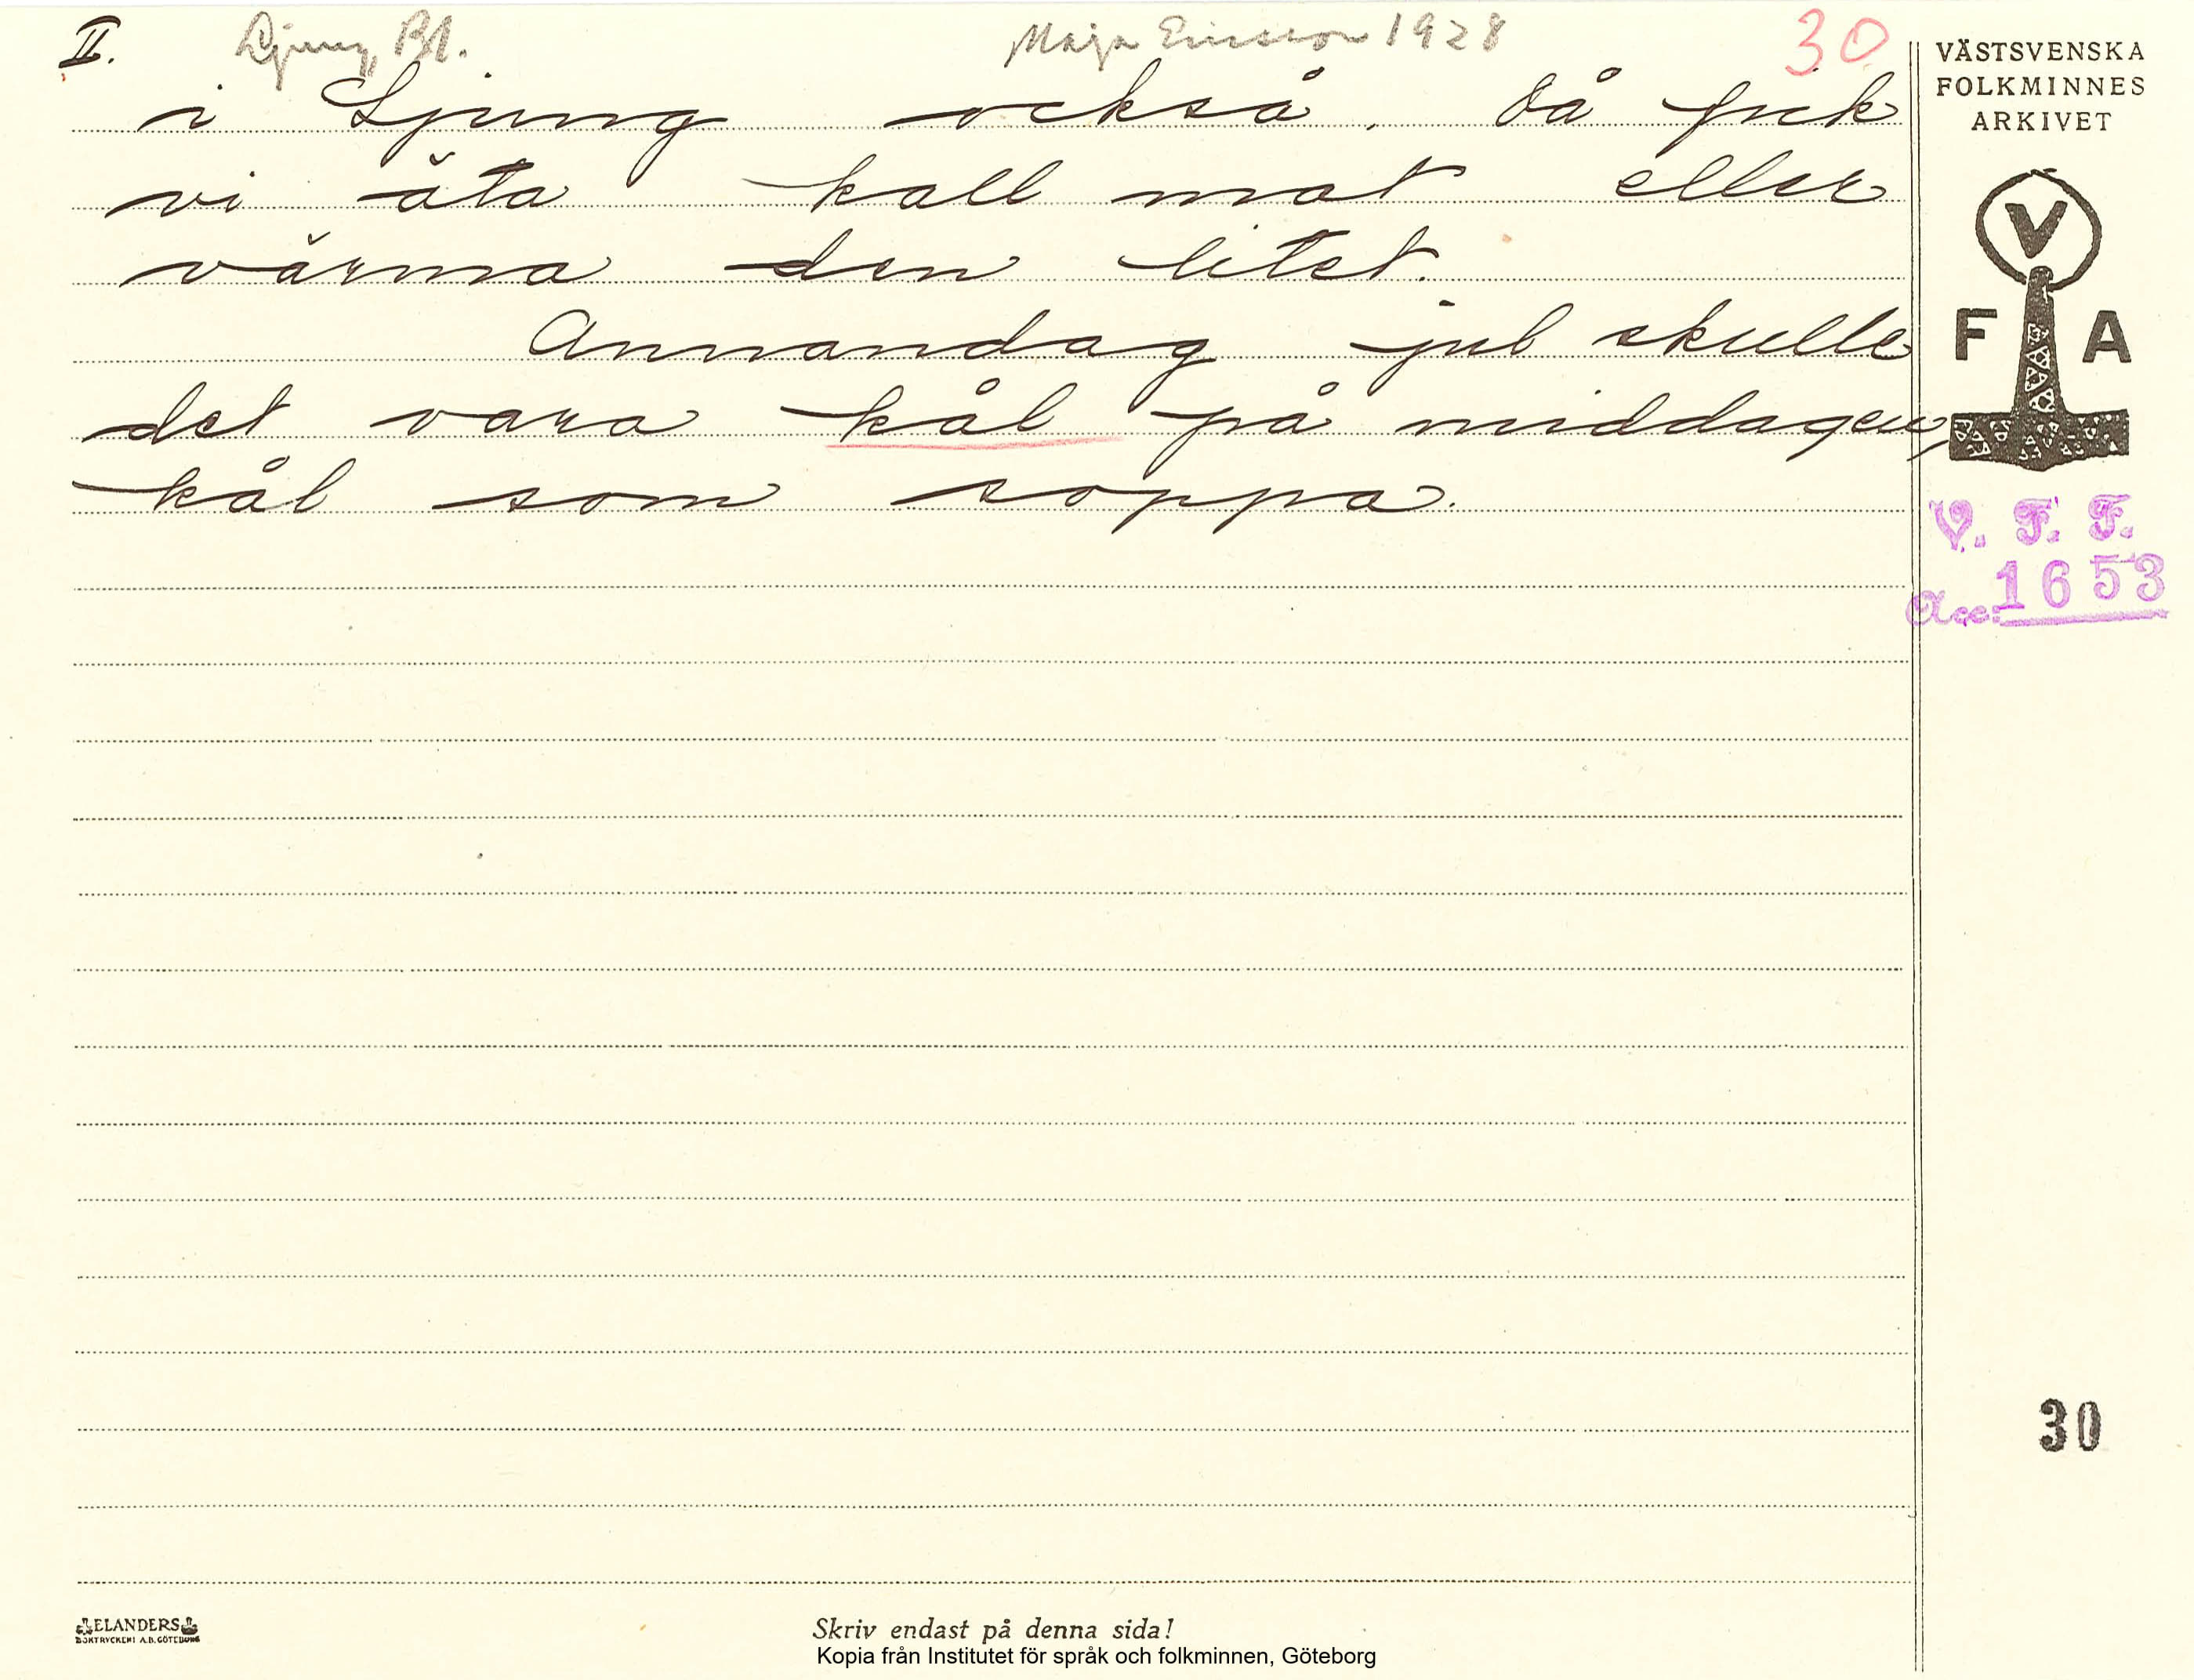 II. Ljung, Bl. Maja Ericsson 1928 30
i Ljung också. Då fick
vi äta kall mat eller
värma den litet.
Annandag jul skulle
det vara kål på middagen,
kål som soppa.
VÄSTSVENSKA
FOLKMINNES
ARKIVET
V
F A
V. F. F.
Acc. 1653
30
ELANDERS
BOKTRYCKERI A.B. GÖTEBORG
Skriv endast på denna sida!
Kopia från Institutet för språk och folkminnen, Göteborg